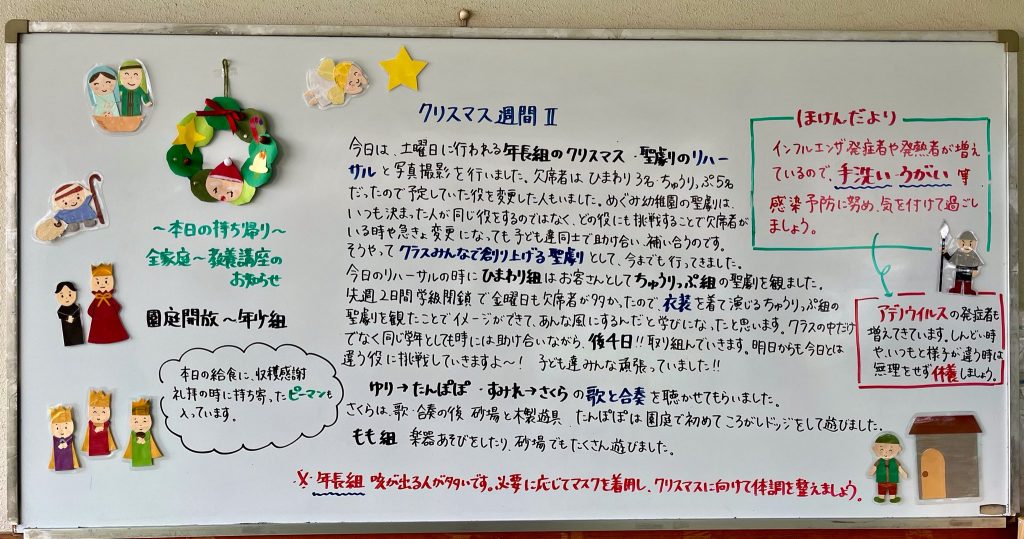 クリスマス週間Ⅱ
今日は、土曜日に行われる年長組のクリスマス・聖劇のリハー
サルと写真撮影を行いました。欠席者はひまわり3名・ちゅうりっぷ5名
だったので予定していた役を変更した人もいました。めぐみ幼稚園の聖劇は、
いつも決まった人が同じ役をするのではなく、どの役にも挑戦することで欠席者が
いる時や急きょ変更になっても子ども達同士で助け合い、補い合うのです。
そうやってクラスみんなで創り上げる聖劇として、今までも行ってきました。
今日のリハーサルの時にひまわり組はお客さんとしてちゅうりっぷ組の聖劇を観ました。
先週2日間学級閉鎖で金曜日も欠席者が多かったので、衣装を着て演じるちゅうりっぷ組の
聖劇を観たことでイメージができて、あんな風にするんだと学びになったと思います。クラスの中だけ
でなく同じ学年として時には助け合いながら、後4日!!取り組んでいきます。明日からも今日とは
違う役に挑戦していきますよ〜! 子ども達みんな頑張っていました!!
ゆり→たんぽぽ・すみれ→さくらの歌と合奏を聴かせてもらいました。
さくらは、歌・合奏の後、砂場と木製遊具、たんぽぽは園庭で初めてころがしドッジをして遊びました。
もも組 楽器あそびをしたり、砂場でもたくさん遊びました。
※年長組 咳が出る人が多いです。必要に応じてマスクを着用し、クリスマスに向けて体調を整えましょう。
〜本日の持ち帰り〜
全家庭〜教養講座の
お知らせ
園庭開放〜年少組
本日の給食に、収穫感謝
礼拝の時に持ち寄ったピーマンも
入っています。
ほけんだより
インフルエンザ発症者や発熱者が増え
ているので、手洗い・うがい等
感染予防に努め、気を付けて過ごし
ましょう。
アデノウイルスの発症者も
増えてきています。しんどい時
や、いつもと様子が違う時は
無理をせず休養しましょう。